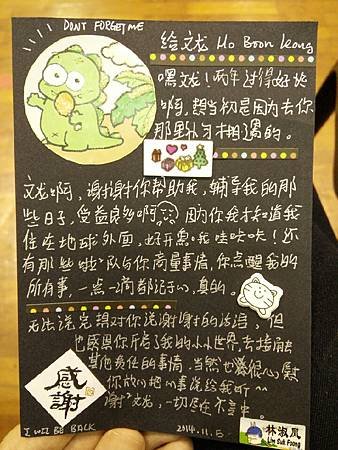 DONT FORGET ME
给文龙 Ho Boon Leong
嘿文龙！两年过得好快
啊，想当初是因为去你
那里补习相遇的。
文龙啊，谢谢你帮助我，辅导我的那
些日子，受益良多啊 因为你我才知道我
住在地球外面，好开窍我哇咔咔！还
有那些啦啦队与你商量事情，你点醒我的
所有事，一点一滴都记于心，真的。
无法说完想对你说谢谢的话语，但
也感恩你开启了我的小小世界，去接触
其他责任的事情，当然也很心慰
你放心把心事说给我听^^
谢谢文龙，一切尽在不言中。
感謝
I WILL BE BACK
2014.11.5
林淑凤
Lim Suk Foong